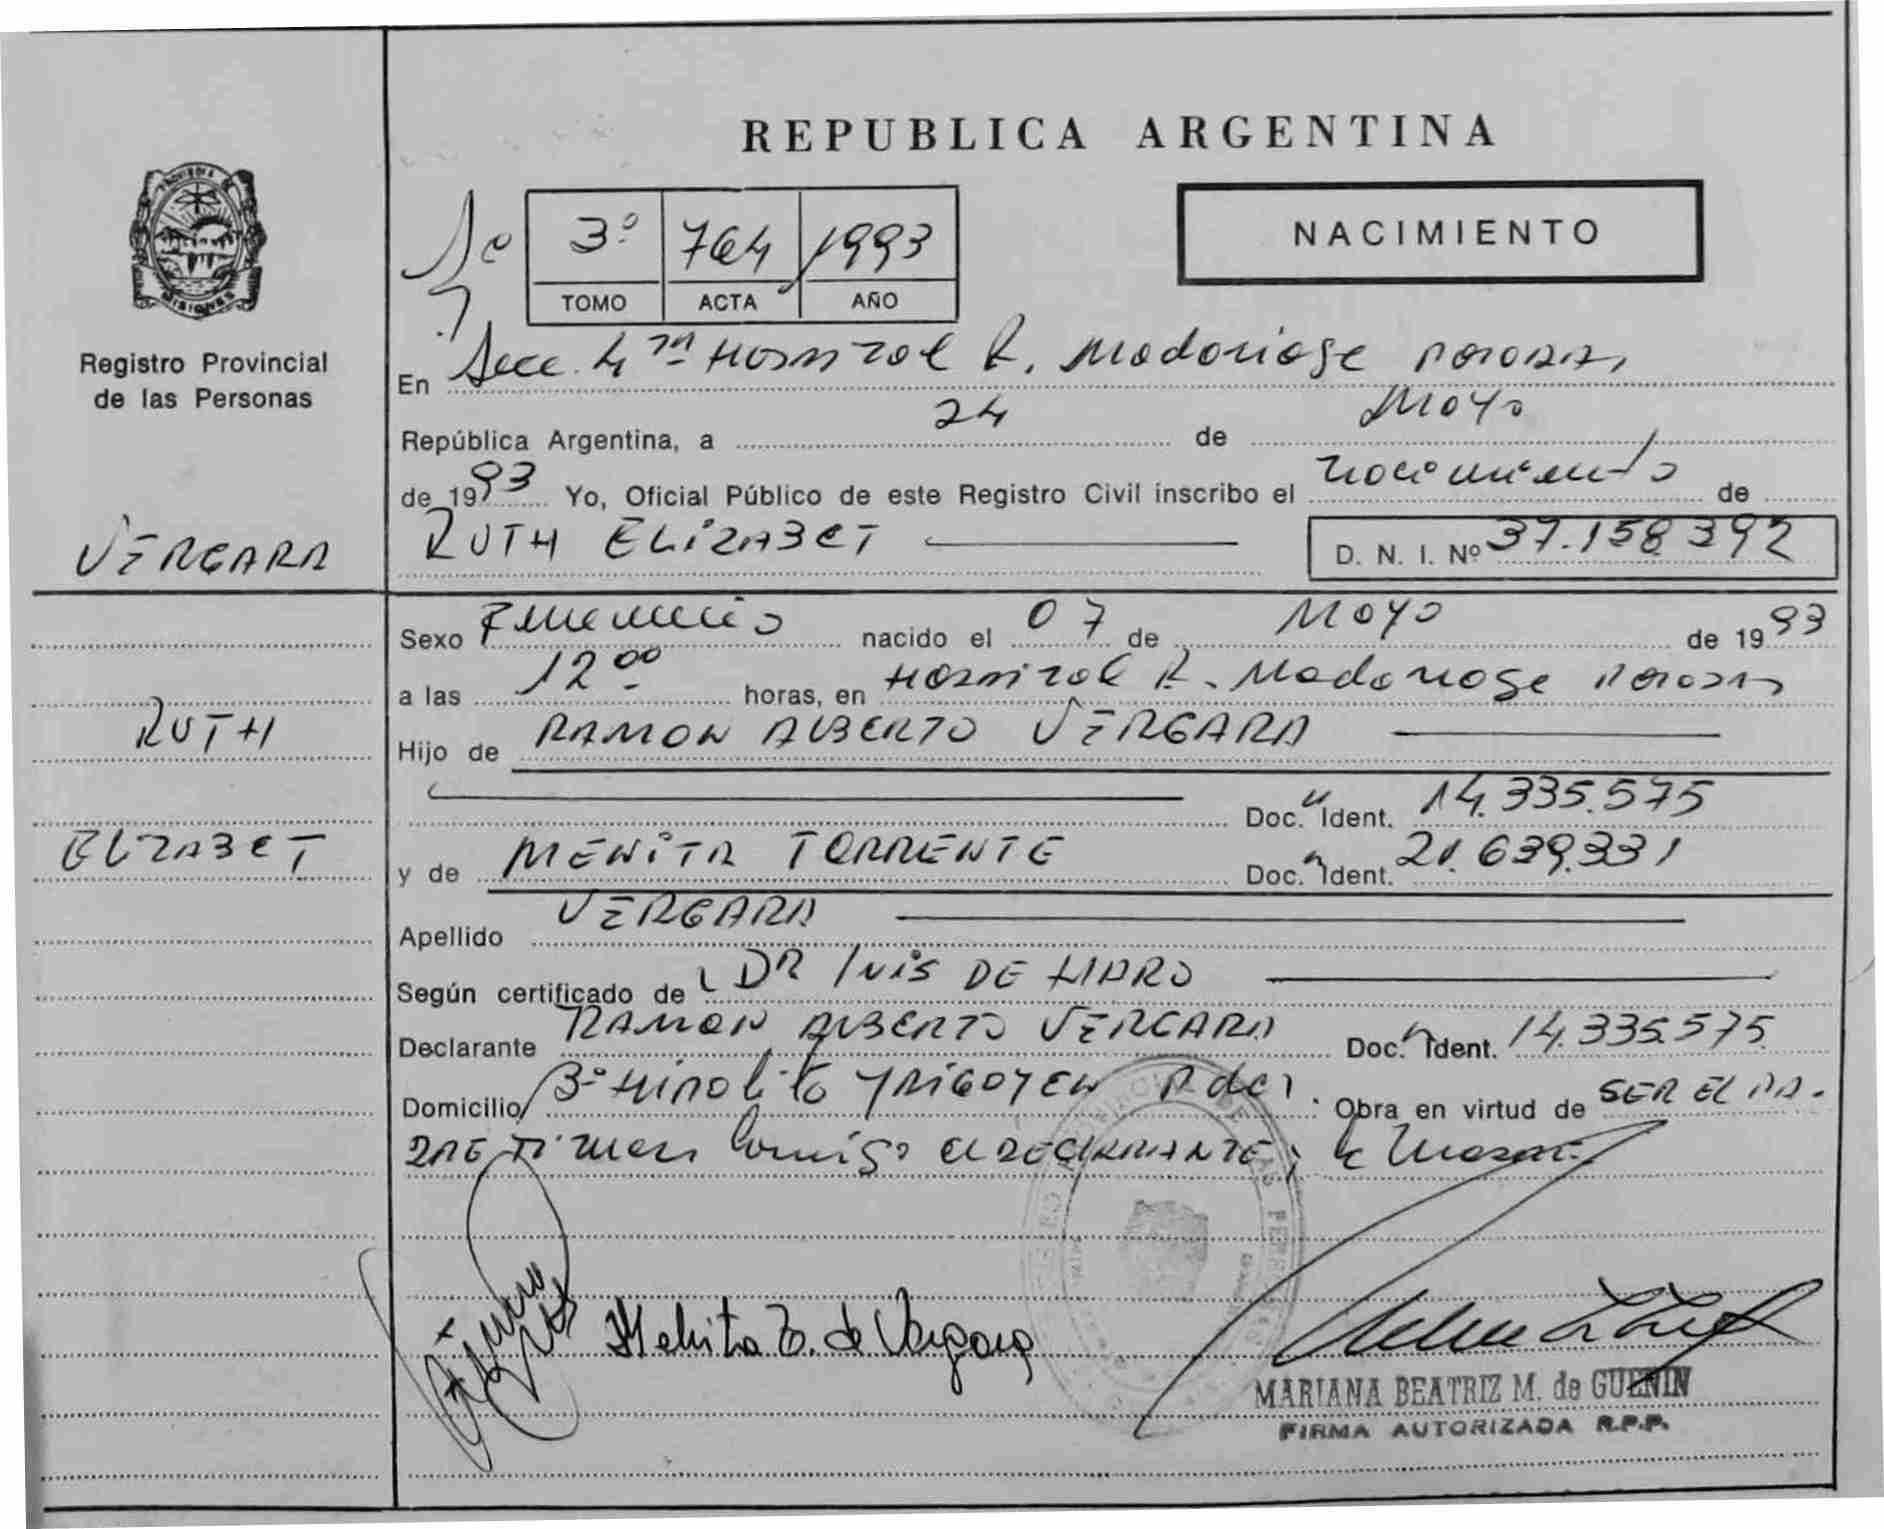 REPUBLICA ARGENTINA
PROVINCIA DE
MISIONES
Registro Provincial
de las Personas
3º 764 1993
TOMO ACTA AÑO
NACIMIENTO
En Secc. 4ta Hospital R. Madariaga Posadas,
República Argentina, a 24 de Mayo
de 1993 Yo, Oficial Público de este Registro Civil inscribo el nacimiento de
VERGARA
RUTH ELIZABET D. N. I. Nº 37.158.392
Sexo Femenino nacido el 07 de Mayo de 1993
a las 12 00 horas, en Hospital R. Madariaga Posadas
RUTH
Hijo de RAMON ALBERTO VERGARA
Doc. Ident. 14.335.575
ELIZABET
y de MENITA TORRENTE Doc. Ident. 21.639.331
Apellido VERGARA
Según certificado de DR DE HARO
Declarante RAMON ALBERTO VERGARA Doc. Ident. 14.335.575
Domicilio Bº Hipolito YRIGOYEN Obra en virtud de SER EL PA-
DRE conmigo el DECLARANTE,
Menita T. de Vergara
MARIANA BEATRIZ M. de GUENIN
FIRMA AUTORIZADA R.P.P.